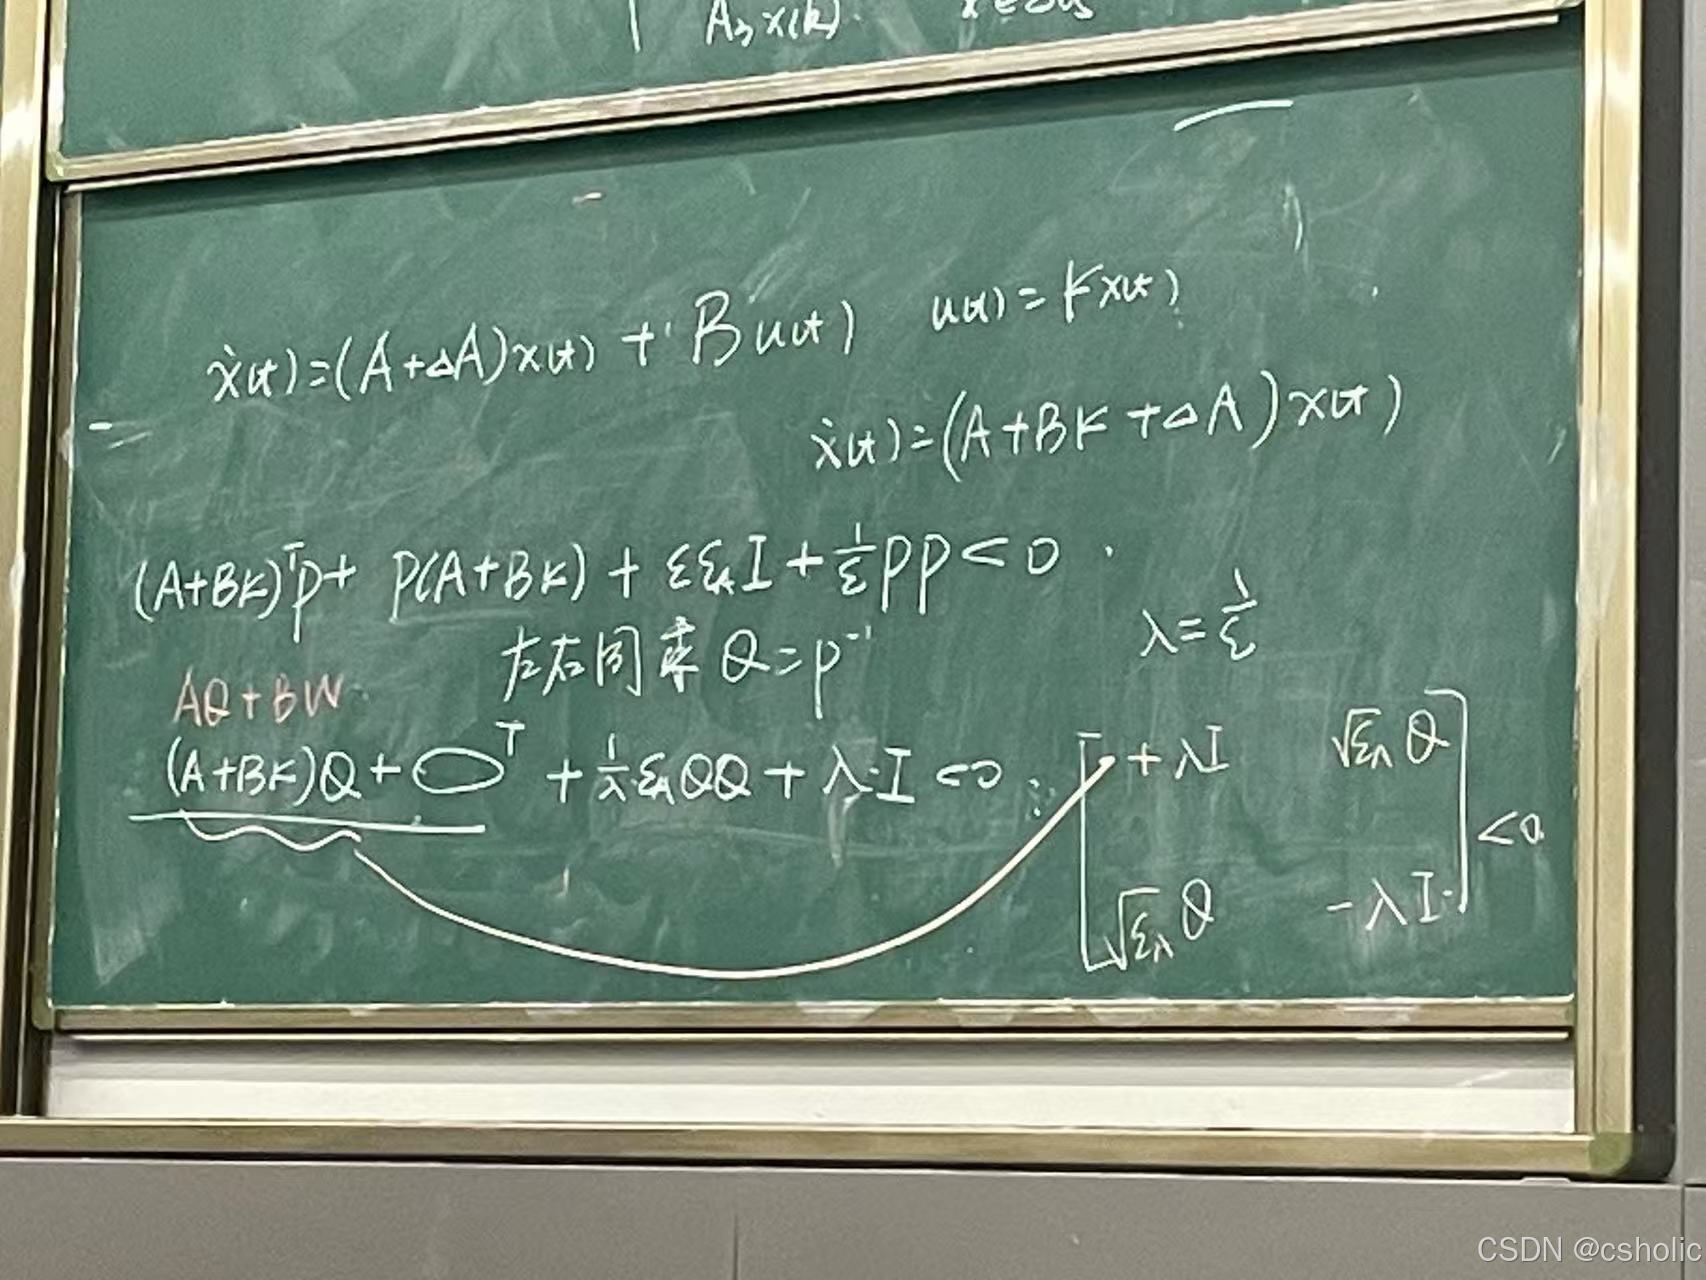 A₃x(k)
ẋ(t)=(A+ΔA)x(t)+Bu(t) u(t)=Kx(t)
ẋ(t)=(A+BK+ΔA)x(t)
(A+BK)ᵀP+P(A+BK)+εε_A I+1/ε PP<0.
左右同乘 Q=P⁻¹ λ=1/ε
AQ+BW
(A+BK)Q+ ᵀ+1/λ·ε_A QQ+λ·I<0
+λI √ε_A Q
<0
√ε_A Q -λI
CSDN @csholic